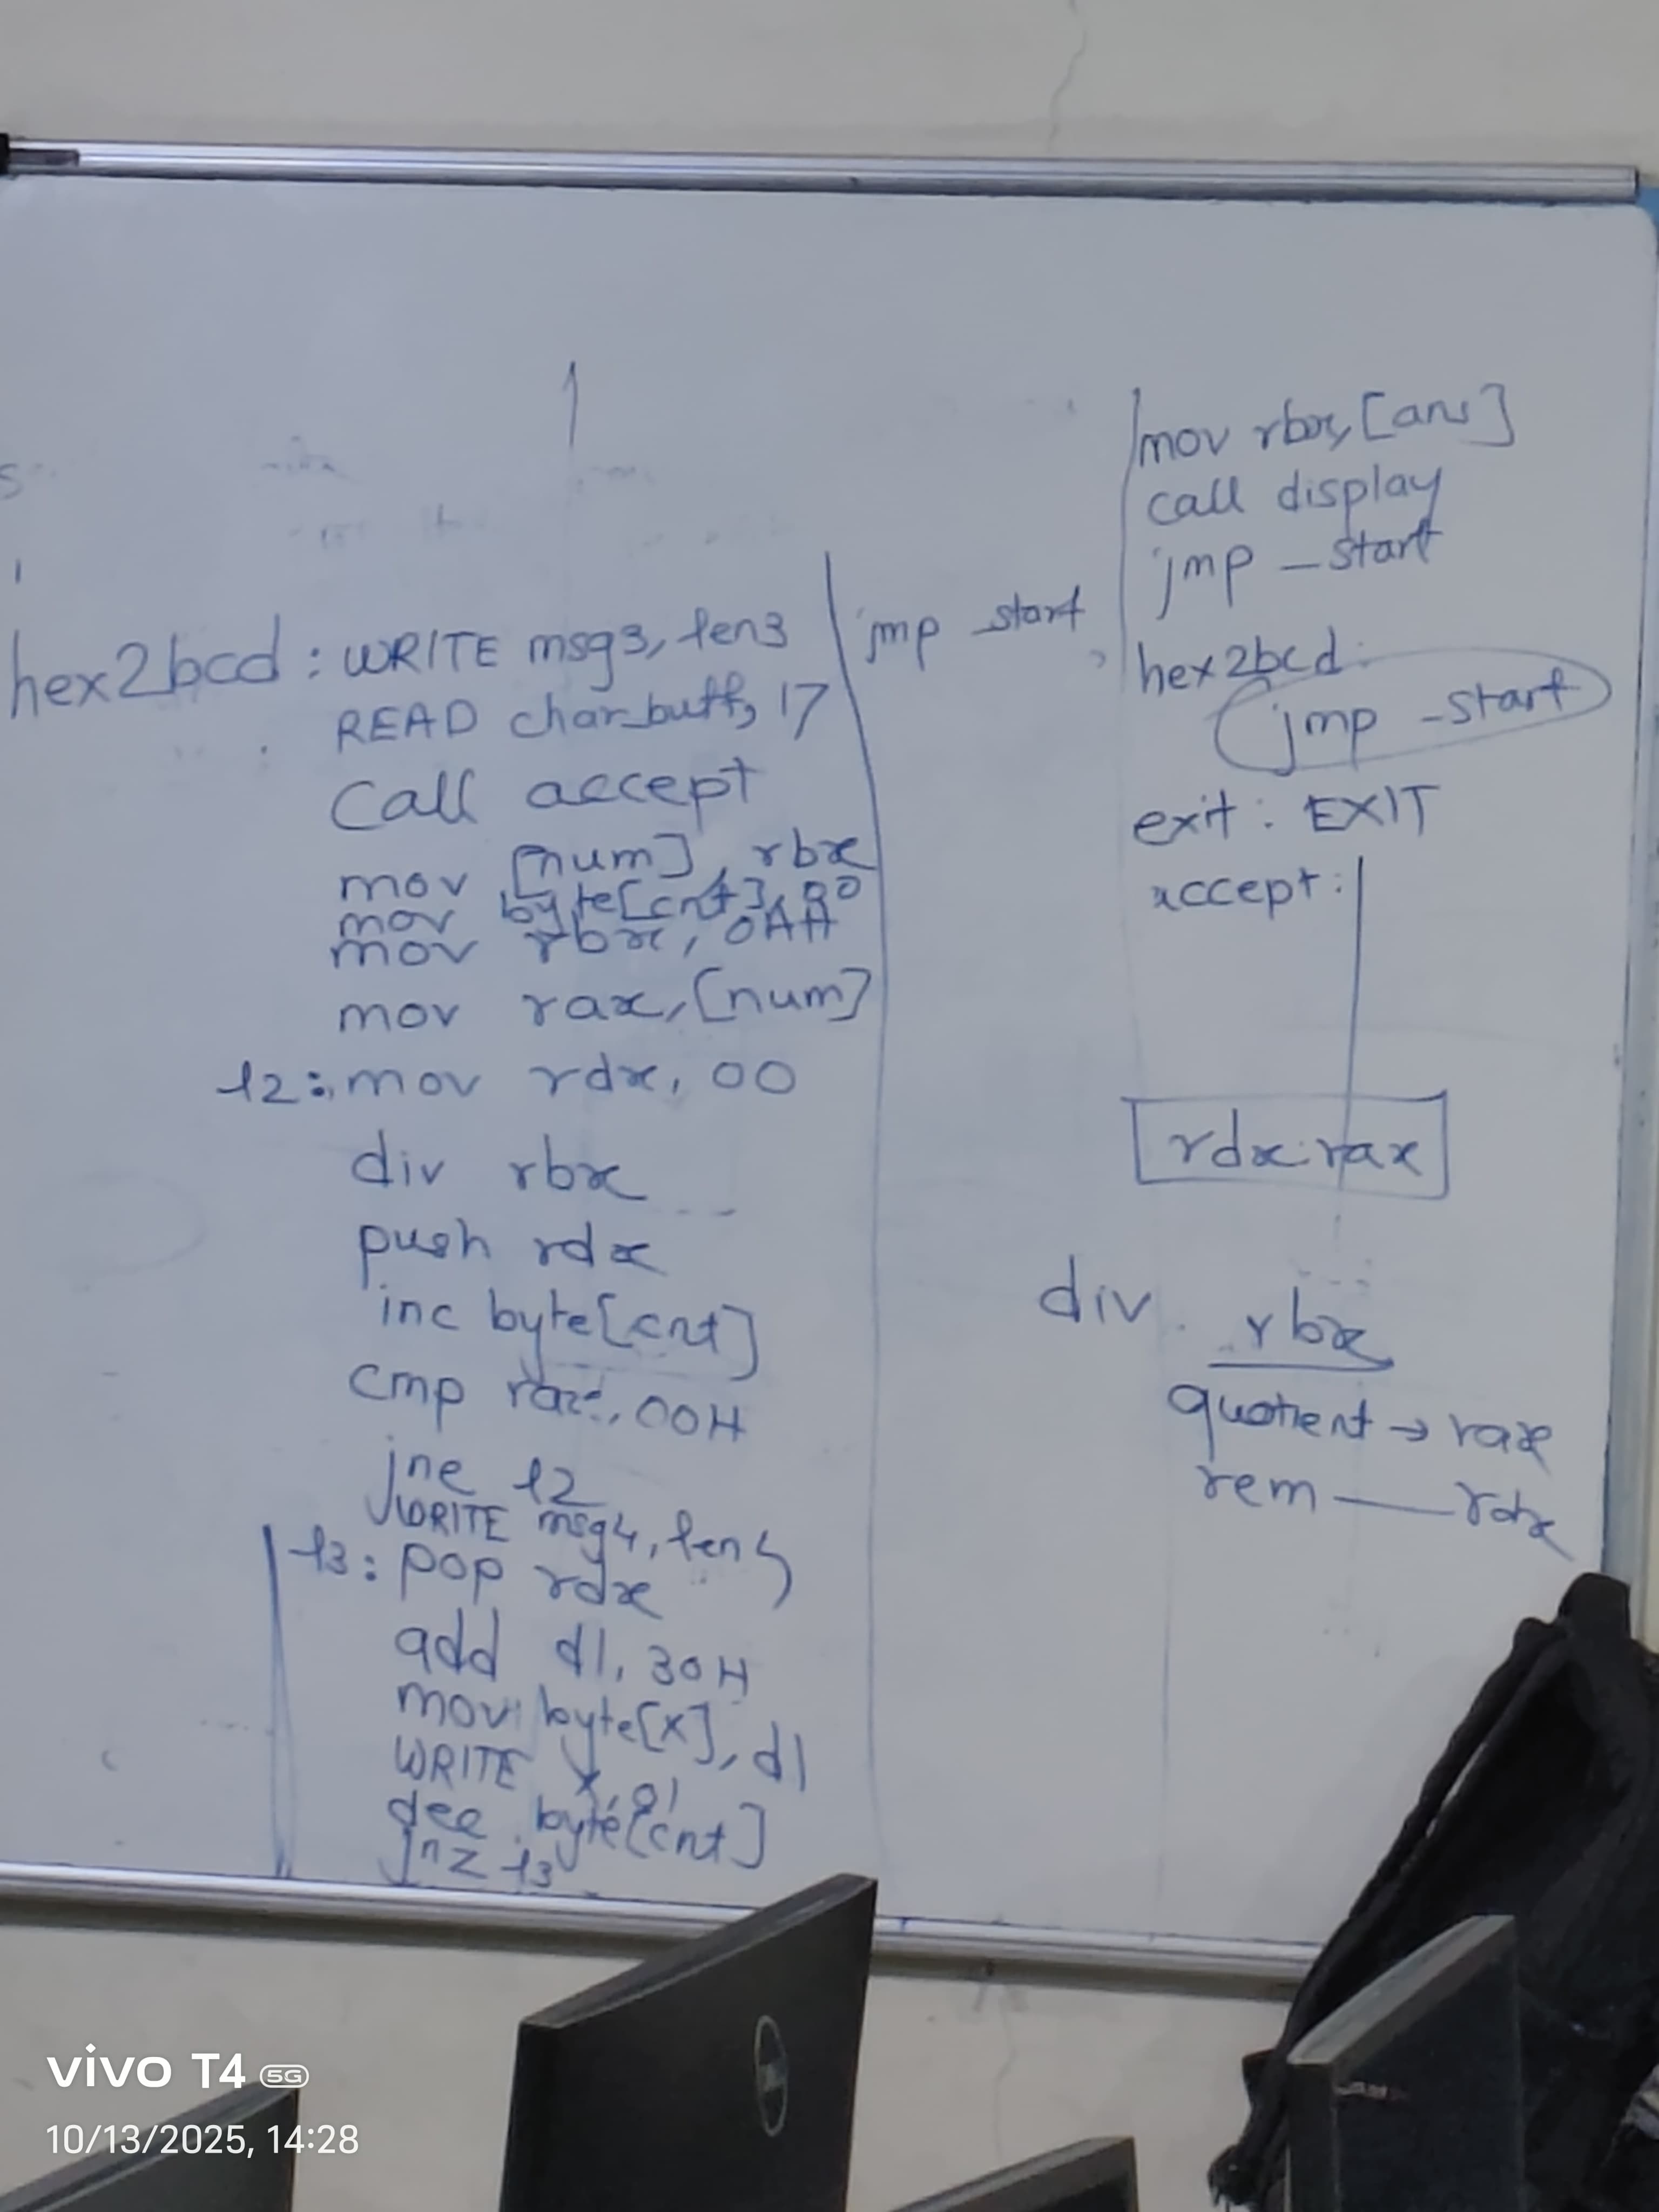 hex2bcd : WRITE msg3, len3
READ char_buff, 17
Call accept
mov [num], rbx
mov byte[cnt], 00
mov rbx, 0AH
mov rax, [num]
l2: mov rdx, 00
div rbx
push rdx
inc byte[cnt]
cmp rax, 00H
jne l2
WRITE msg4, len4
l3: pop rdx
add dl, 30H
mov byte[x], dl
WRITE x, 01
dec byte[cnt]
jnz l3
jmp _start
mov rbx, [ans]
call display
jmp _start
hex2bcd:
jmp _start
exit: EXIT
accept:
rdx:rax
div rbx
quotient → rax
rem — rdx
vivo T4 5G
10/13/2025, 14:28